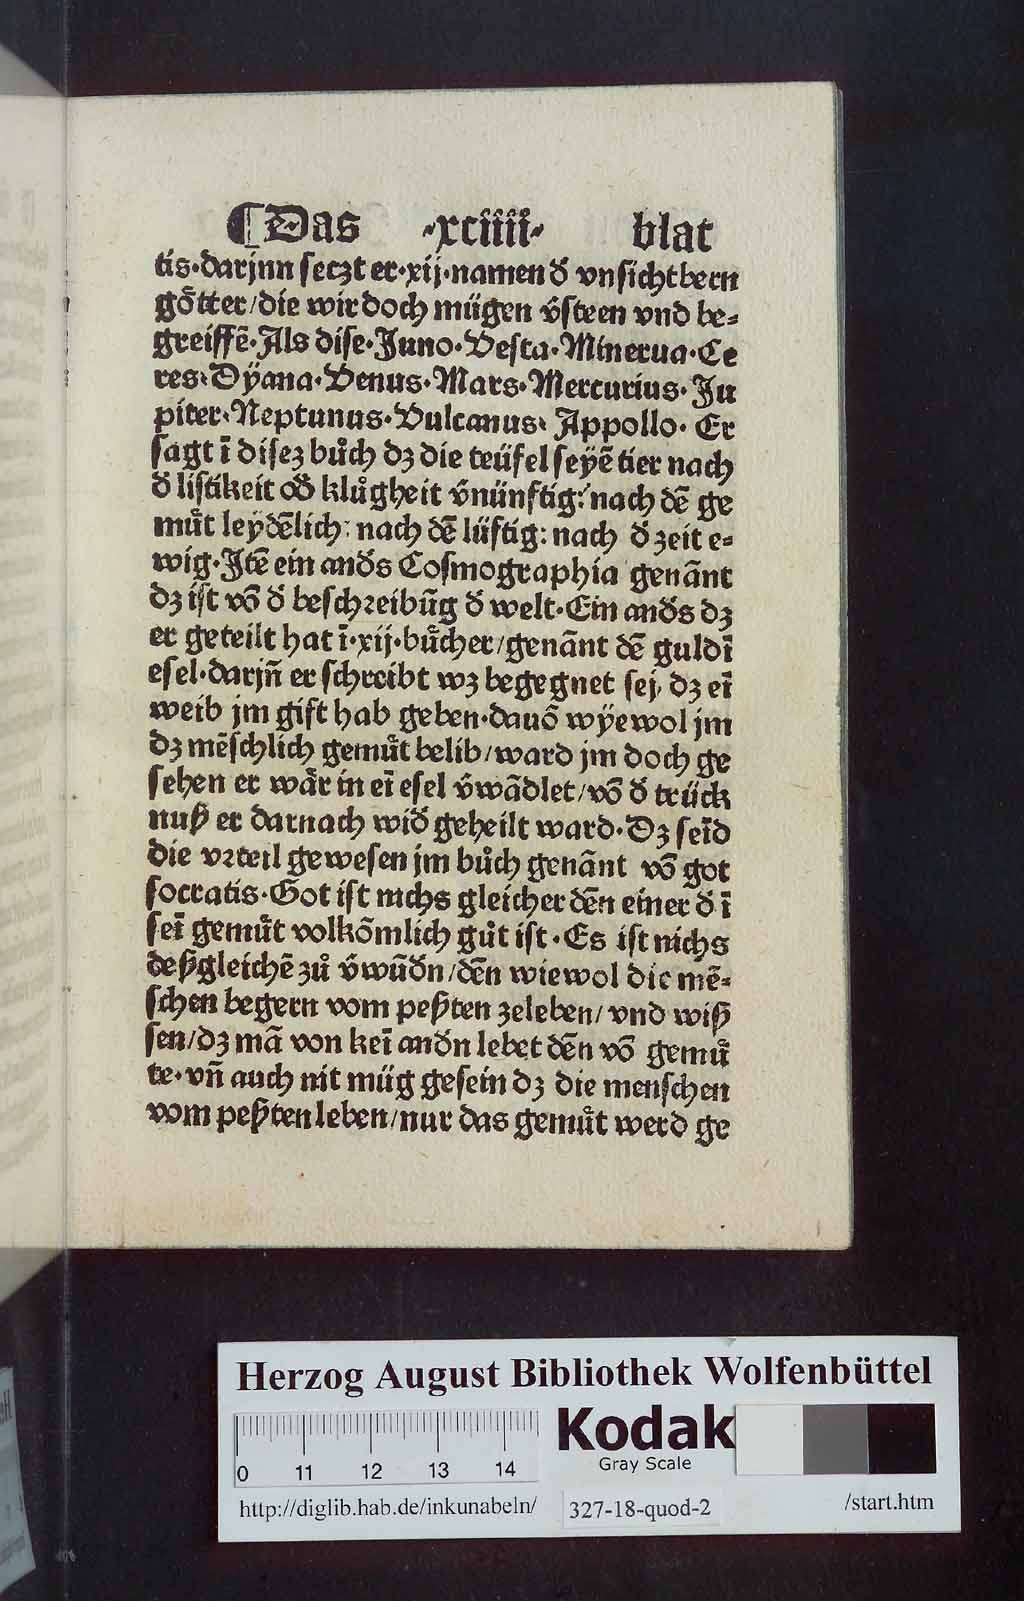 ¶Das ·xciiii· blat
tis·darjnn seczt er·xij·namen d̓ vnsichtbern
goͤtter/die wir doch mügen v̓steen vnd be⸗
greiffē·Als dise·Juno·Vesta·Minerua·Ce
res·Dÿana·Venus·Mars·Mercurius·Ju
piter·Neptunus·Vulcanus·Appollo·Er
sagt ī disez bůch dz die teüfel seyē tier nach
d̓ listikeit od̓ klůgheit v̓nünftig: nach dē ge
muͤt leydēlich: nach dē lüftig: nach d̓ zeit e⸗
wig·Jtē ein and̓s Cosmographia genānt
dz ist vō d̓ beschꝛeibūg d̓ welt·Ein and̓s dz
er geteilt hat ī·xij·buͤcher/genānt dē guldī
esel·darjn̄ er schreibt wz begegnet sej, dz eī
weib jm gift hab geben·dauō wÿewol jm
dz mēschlich gemuͤt belib/ward jm doch ge
sehen er waͤr in eī esel v̓wādlet/vō d̓ trück
nuß er darnach wid̓ geheilt ward·Dz seīd
die vꝛteil gewesen jm bůch genānt vō got
socratis·Got ist nichs gleicher dēn einer d̓ ī
seī gemuͤt volkōmlich gůt ist·Es ist nichs
deßgleichē zů v̓wūd̓n/dēn wiewol die mē⸗
schen begern vom peßten zeleben/vnd wiß
sen/dz mā von keī and̓n lebet dēn vō gemuͤ
te·vn̄ auch nit müg gesein dz die menschen
vom peßten leben/nur das gemuͤt werd ge
Herzog August Bibliothek Wolfenbüttel
0 11 12 13 14
Kodak
Gray Scale
http://diglib.hab.de/inkunabeln/ 327-18-quod-2 /start.htm